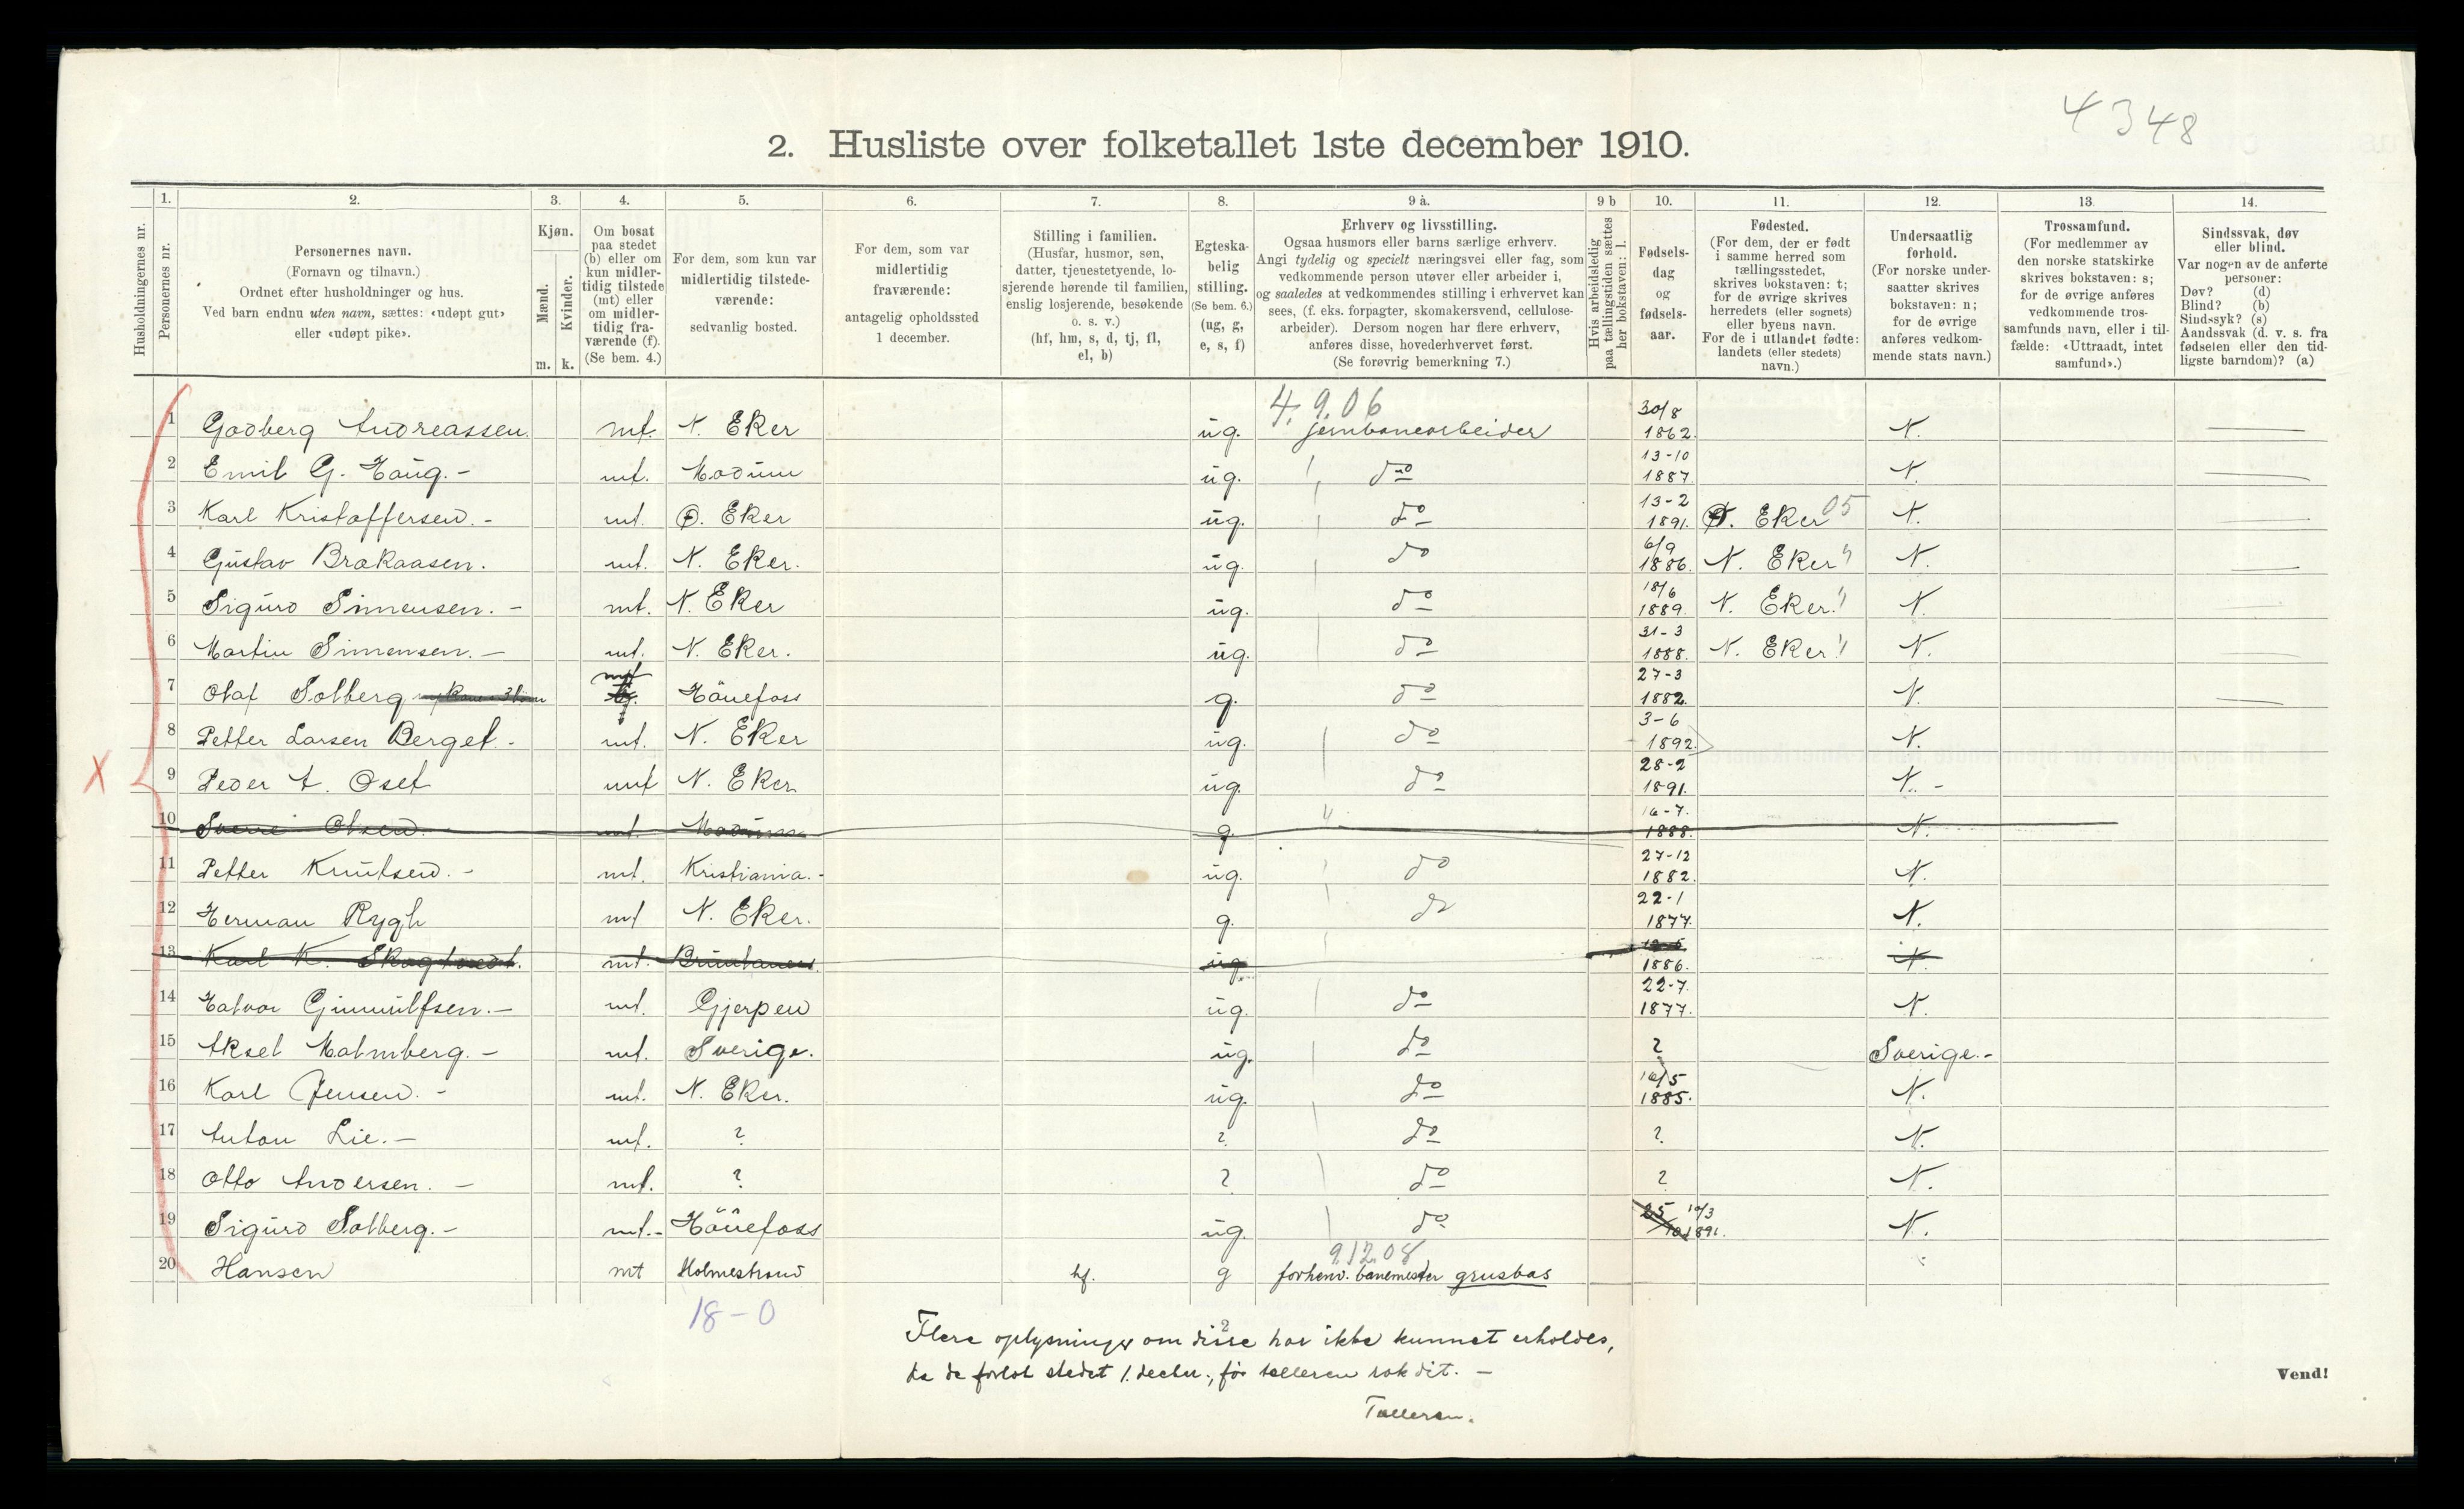 4348
2. Husliste over folketallet 1ste december 1910.
Husholdningernes nr.
1. Personernes nr.
2. Personernes navn. (Fornavn og tilnavn.) Ordnet efter husholdninger og hus. Ved barn endnu uten navn, sættes: «udøpt gut» eller «udøpt pike».
3. Kjøn. Mænd. m. Kvinder. k.
4. Om bosat paa stedet (b) eller om kun midlertidig tilstede (mt) eller om midlertidig fraværende (f). (Se bem. 4.)
5. For dem, som kun var midlertidig tilstedeværende: sedvanlig bosted.
6. For dem, som var midlertidig fraværende: antagelig opholdssted 1 december.
7. Stilling i familien. (Husfar, husmor, søn, datter, tjenestetyende, losjerende hørende til familien, enslig losjerende, besøkende o. s. v.) (hf, hm, s, d, tj, fl, el, b)
8. Egteskabelig stilling. (Se bem. 6.) (ug, g, e, s, f)
9 a. Erhverv og livsstilling. Ogsaa husmors eller barns særlige erhverv. Angi tydelig og specielt næringsvei eller fag, som vedkommende person utøver eller arbeider i, og saaledes at vedkommendes stilling i erhvervet kan sees, (f. eks. forpagter, skomakersvend, cellulosearbeider). Dersom nogen har flere erhverv, anføres disse, hovederhvervet først. (Se forøvrig bemerkning 7.)
9 b Hvis arbeidsledig paa tællingstiden sættes her bokstaven: l.
10. Fødselsdag og fødselsaar.
11. Fødested. (For dem, der er født i samme herred som tællingsstedet, skrives bokstaven: t; for de øvrige skrives herredets (eller sognets) eller byens navn. For de i utlandet fødte: landets (eller stedets) navn.)
12. Undersaatlig forhold. (For norske undersaatter skrives bokstaven: n; for de øvrige anføres vedkommende stats navn.)
13. Trossamfund. (For medlemmer av den norske statskirke skrives bokstaven: s; for de øvrige anføres vedkommende trossamfunds navn, eller i tilfælde: «Uttraadt, intet samfund».)
14. Sindssvak, døv eller blind. Var nogen av de anførte personer: Døv? (d) Blind? (b) Sindssyk? (s) Aandssvak (d. v. s. fra fødselen eller den tidligste barndom)? (a)
4.9.06
1 Godberg Andreassen mt. N. Eker ug. jernbanearbeider 30/8 1862. N.
2 Emil G. Haug.- mt. Modum ug. do 13-10 1887. N.
3 Karl Kristoffersen.- mt. Ø. Eker ug. do 13-2 1891. Ø. Eker 05 N.
4 Gustav Brakaasen. mt. N. Eker. ug. do 6/9 1886. N. Eker " N.
5 Sigurd Simensen.- mt. N. Eker ug. do 18/6 1889. N. Eker. " N.
6 Martin Simensen.- mt. N. Eker. ug. do 31-3 1888. N. Eker. " N.
7 Olaf Solberg mt Hönefoss g. do 27-3 1882. N.
8 Petter Larsen Berget.- mt. N. Eker ug. do 3-6 1892. N.
9 Peder A. Oset mt N. Eker ug. do 28-2 1891. N.-
10 Sverre Olsen. mt. Modum g. " 16-7. 1888. N.
11 Petter Knutsen.- mt. Kristiania.- ug. do 27-12 1882. N.
12 Herman Rygh mt N. Eker. g. do 22-1 1877. N.
13 Karl K. Skogtvedt. mt. Brunlanes. ug. 1886. N.
14 Halvor Gunnulfsen.- mt. Gjerpen ug. do 22-7. 1877. N.
15 Aksel Malmberg.- mt. Sverige. ug. do ? Sverige.-
16 Karl Jensen.- mt. N. Eker. ug. do 10/5 1885. N.
17 Anton Lie.- mt. ? ?. do ?. N.
18 Otto Andersen.- mt. ? ? do ? N.
19 Sigurd Solberg.- mt.- Hönefoss ug. do 10/3 1891. N.
91208
20 Hansen mt Holmestrand hf. g forhenv. banemester grusbas
18-0
2
Flere oplysninger om disse har ikke kunnet erholdes,
da de forlot stedet 1. decbr., før tælleren rak dit. -
Tælleren.
Vend!
X